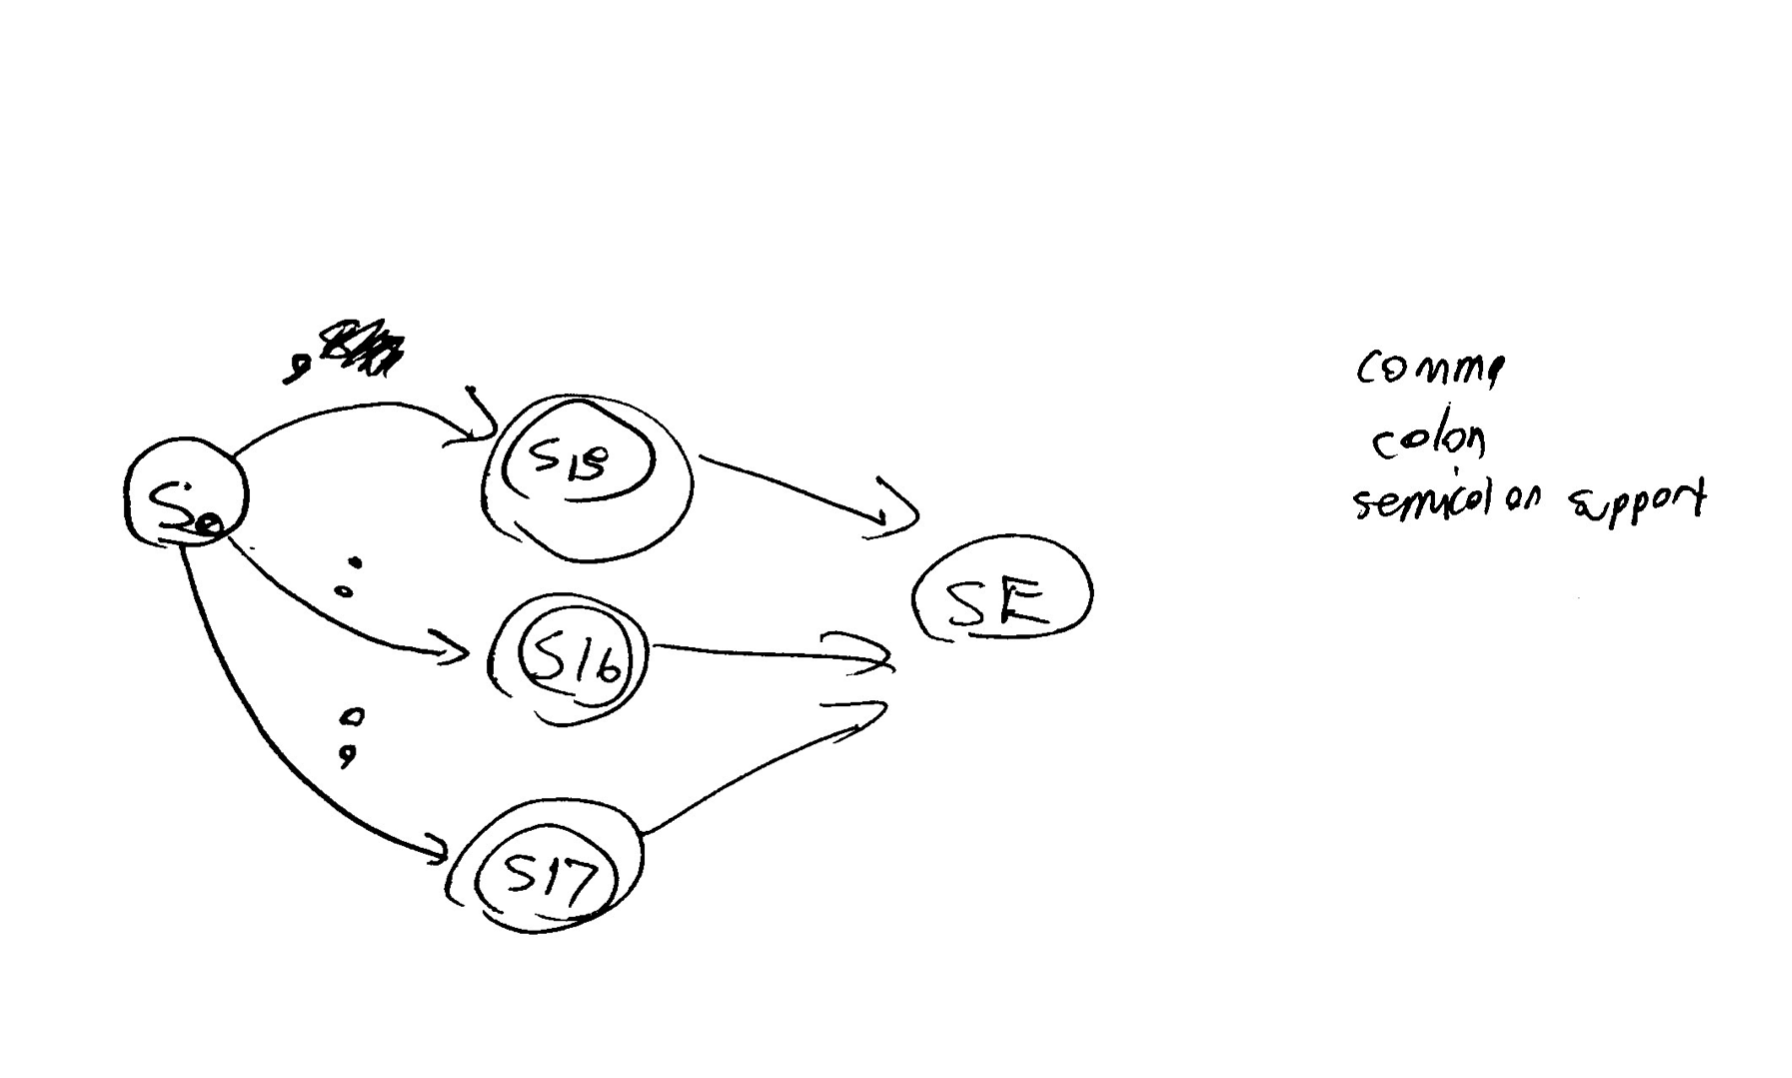 ,
S0
S15
:
S16
;
S17
SE
comma
colon
semicolon support